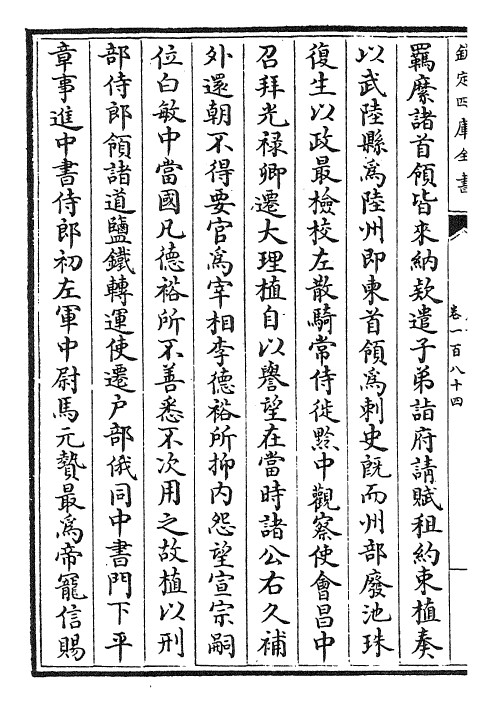 欽定四庫全書
卷一百八十四
羈縻諸首領皆來納欵遣子弟詣府請賦租約束植奏
以武陸縣爲陸州即柬首領爲刺史既而州部廢池珠
復生以政最檢校左散騎常侍徙黔中觀察使會昌中
召拜光禄卿遷大理植自以譽望在當時諸公右久補
外還朝不得要官爲宰相李德裕所抑内怨望宣宗嗣
位白敏中當國凡德裕所不善悉不次用之故植以刑
部侍郎領諸道鹽鐵轉運使遷户部俄同中書門下平
章事進中書侍郎初左軍中尉馬元贄最爲帝寵信賜